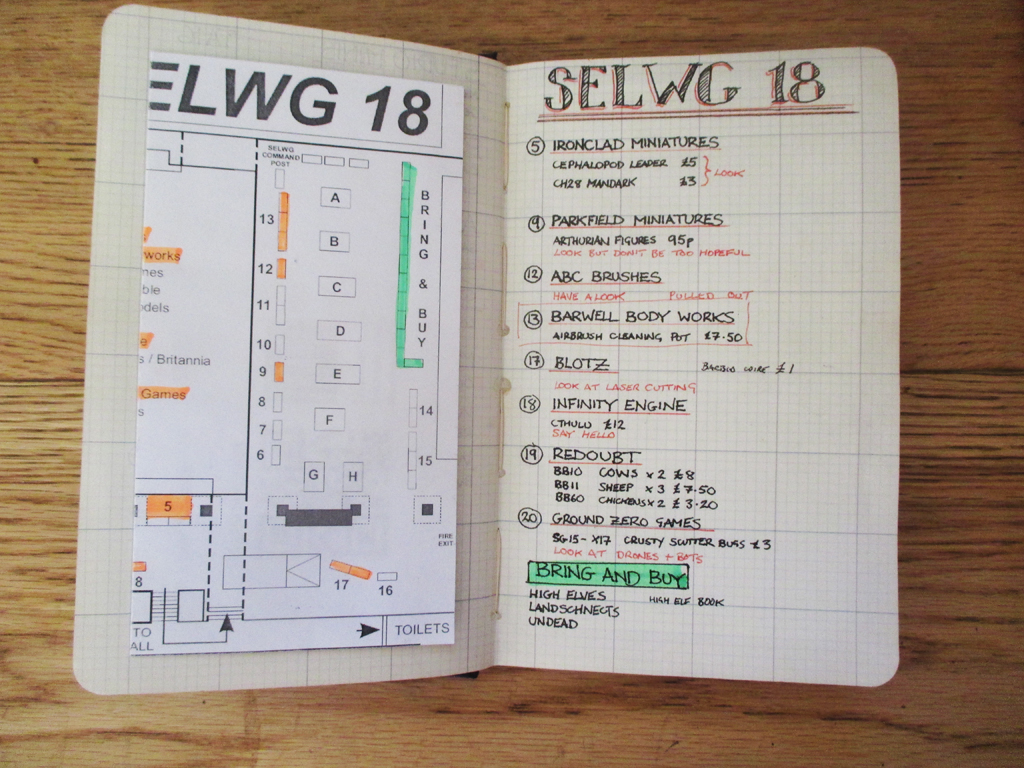 ELWG 18
SELWG
COMMAND
POST
13
12
11
10
9
8
7
6
A
B
C
D
E
F
G
H
BRING & BUY
14
15
works
nes
ble
odels
e
s / Britannia
Games
s
5
FIRE
EXIT
8
17
16
TO
ALL
TOILETS
SELWG 18
5 IRONCLAD MINIATURES
CEPHALOPOD LEADER £5
CH28 MANDARK £3
LOOK
9 PARKFIELD MINIATURES
ARTHURIAN FIGURES 95p
LOOK BUT DON'T BE TOO HOPEFUL
12 ABC BRUSHES
HAVE A LOOK PULLED OUT
13 BARWELL BODY WORKS
AIRBRUSH CLEANING POT £7.50
17 BLOTZ BARBED WIRE £1
LOOK AT LASER CUTTING
18 INFINITY ENGINE
CTHULU £12
SAY HELLO
19 REDOUBT
BB10 COWS x 2 £8
BB11 SHEEP x 3 £7.50
BB60 CHICKENS x 2 £3.20
20 GROUND ZERO GAMES
SG15-X17 CRUSTY SCUTTER BUGS £3
LOOK AT DRONES + BOTS
BRING AND BUY
HIGH ELVES HIGH ELF BOOK
LANDSCHNECTS
UNDEAD